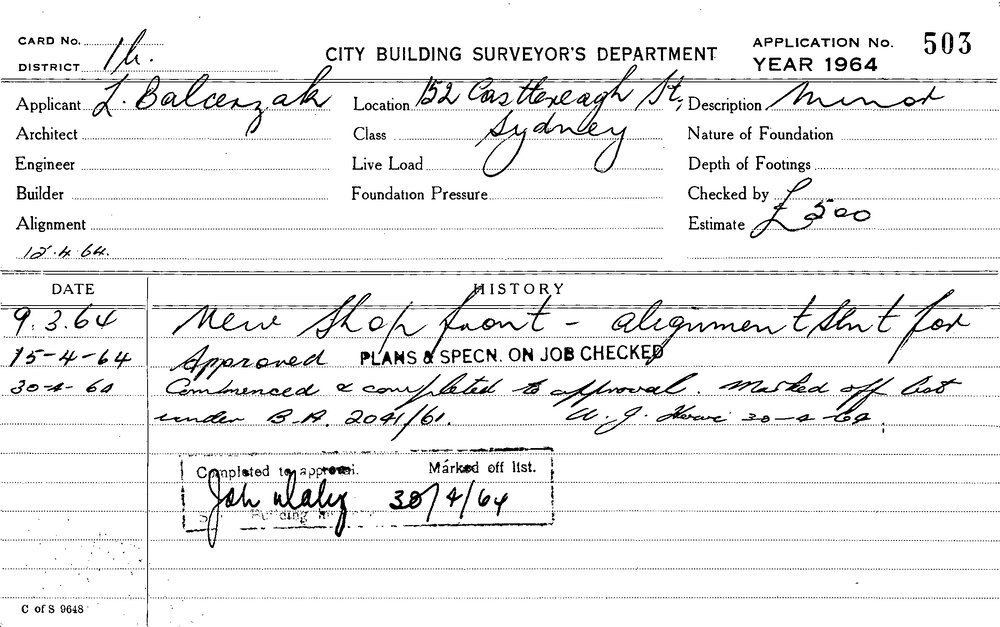 CARD No. 1h.
CITY BUILDING SURVEYOR'S DEPARTMENT
APPLICATION No. 503
DISTRICT
YEAR 1964
Applicant L. Balcerzak Location 152 Castlereagh St; Description Minor
Architect Class Sydney Nature of Foundation
Engineer Live Load Depth of Footings
Builder Foundation Pressure Checked by
Alignment Estimate £500
12.4.64.
DATE HISTORY
9.3.64 New Shop front - alignment sent for
15-4-64 Approved PLANS & SPECN. ON JOB CHECKED
30-4-64 Commenced & completed to approval. Marked off list
under B.A. 2041/61. 30-4-64.
Completed to approval. Marked off list.
30/4/64
Building
C of S 9648